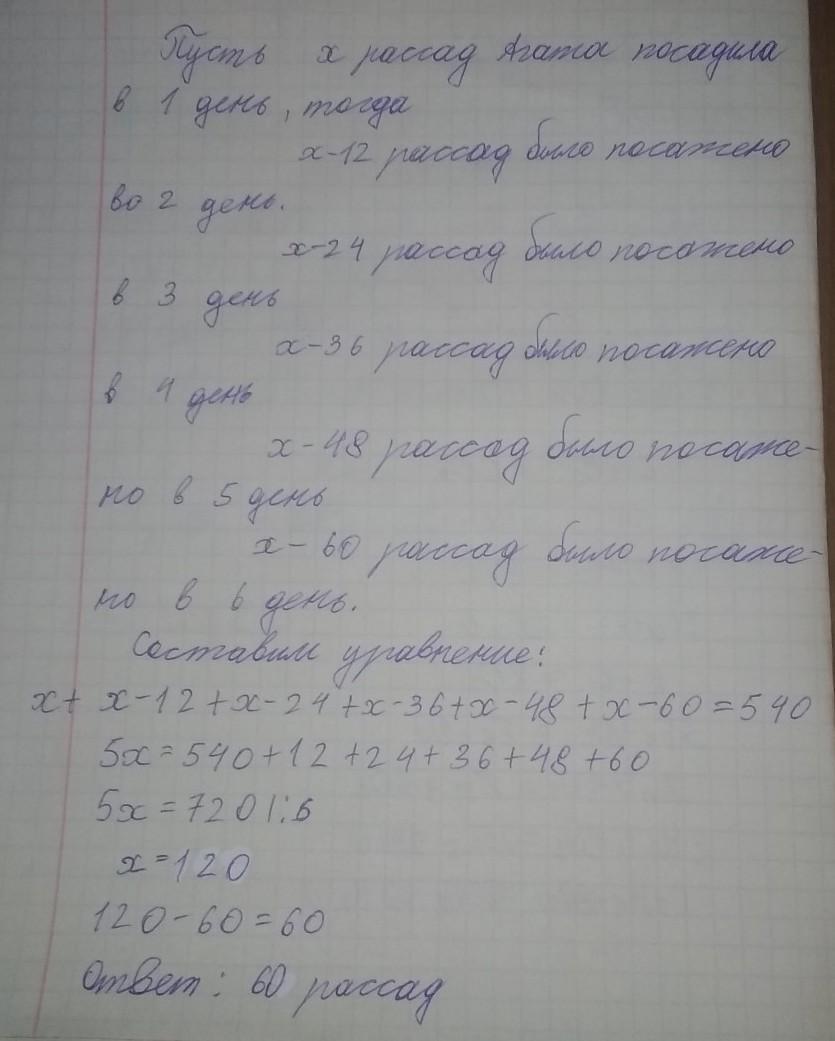 Пусть x рассад Агата посадила
в 1 день, тогда
x-12 рассад было посажено
во 2 день.
x-24 рассад было посажено
в 3 день
x-36 рассад было посажено
в 4 день
x-48 рассад было посаже-
но в 5 день
x-60 рассад было посаже-
но в 6 день.
Составим уравнение:
x+ x-12+x-24+x-36+x-48+x-60=540
5x=540+12+24+36+48+60
5x=720 |:6
x=120
120-60=60
Ответ: 60 рассад